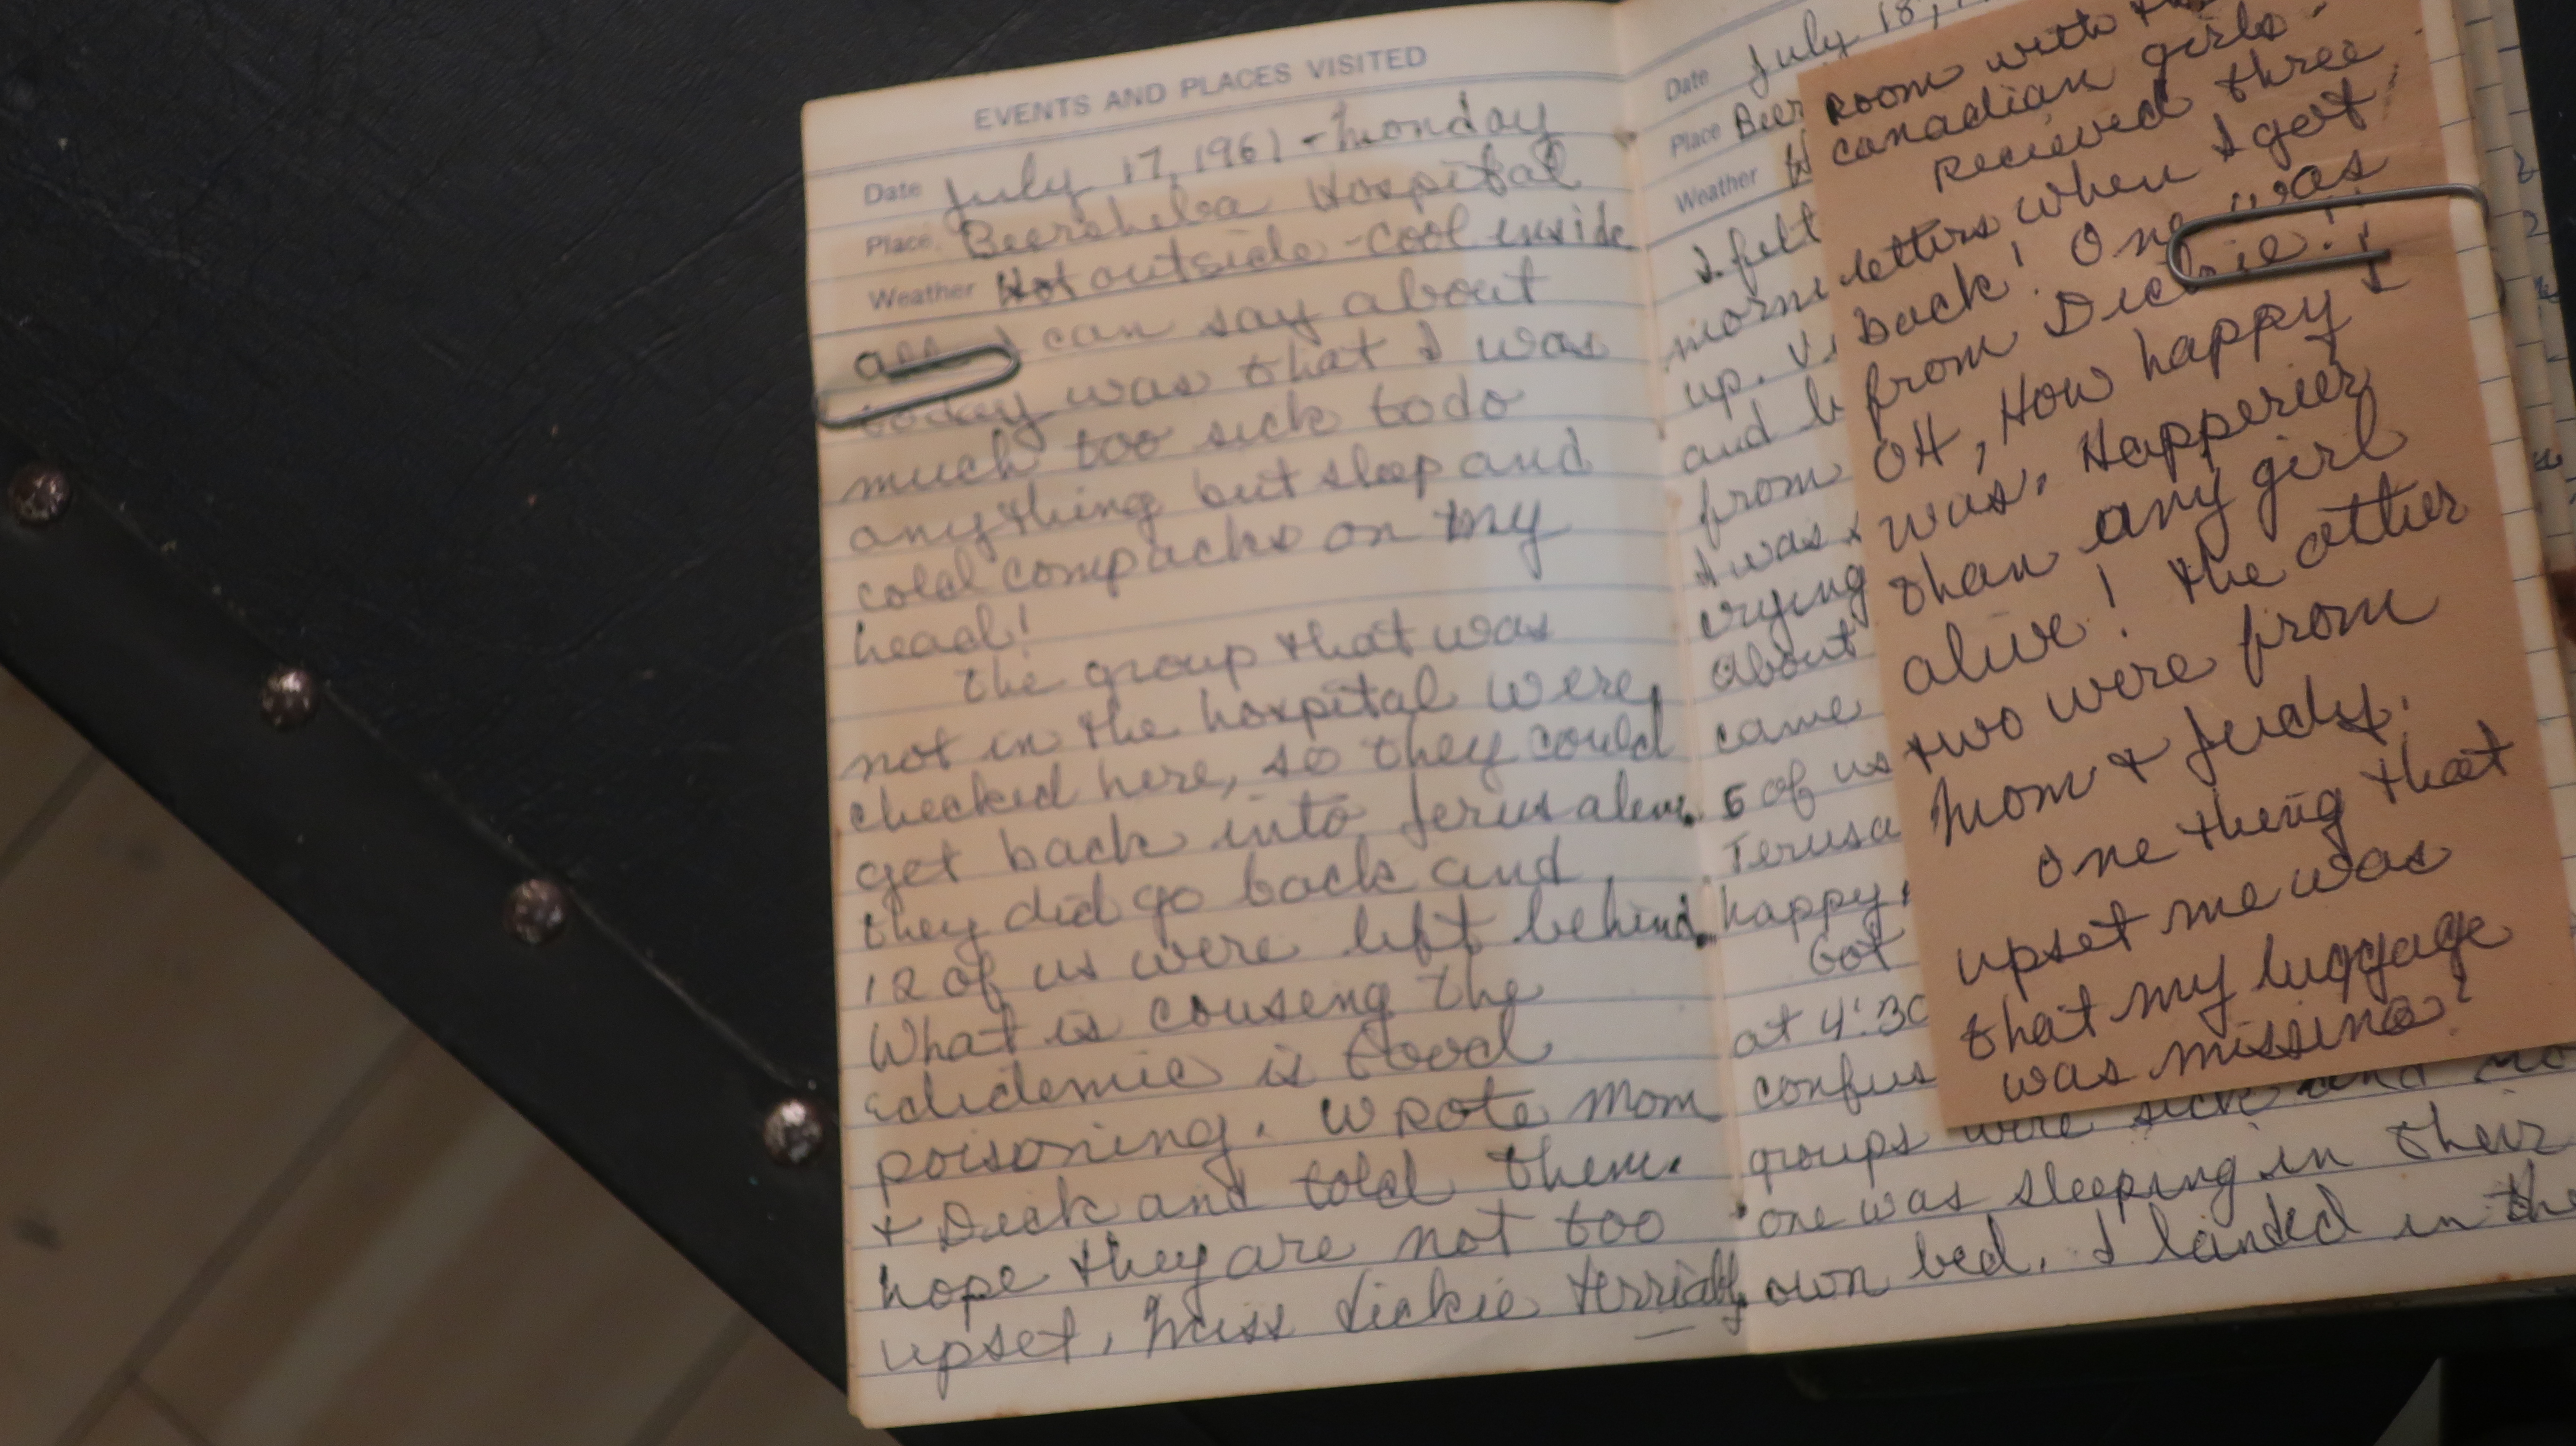 EVENTS AND PLACES VISITED
Date July 17, 1961 - Monday
Place Beersheba Hospital
Weather Hot outside - cool inside
all I can say about
today was that I was
much too sick to do
anything but sleep and
cold compacks on my
head!
The group that was
not in the hospital were
checked here, so they could
get back into Jerusalem.
they did go back and
12 of us were left behind.
What is causeng the
edidemic is food
poisoning. Wrote Mom
+ Dick and told them.
hope they are not too
upset. Miss Dickie terribly
Date July 18,
Place Beer
Weather H
I felt
morni
up.
and b
from
I was
crying
about
came
5 of us
Jerusa
happy,
Got
at 4:30
confus
groups were sick and no
one was sleeping in their
own bed. I landed in the
Room with
canadian girls.
Recieved three
letters when I got
back! One was
from Dickie!!
OH, How happy I
was. Happerier
than any girl
alive! The other
two were from
Mom + Judy.
One theng that
upset me was
that my luggage
was missing!